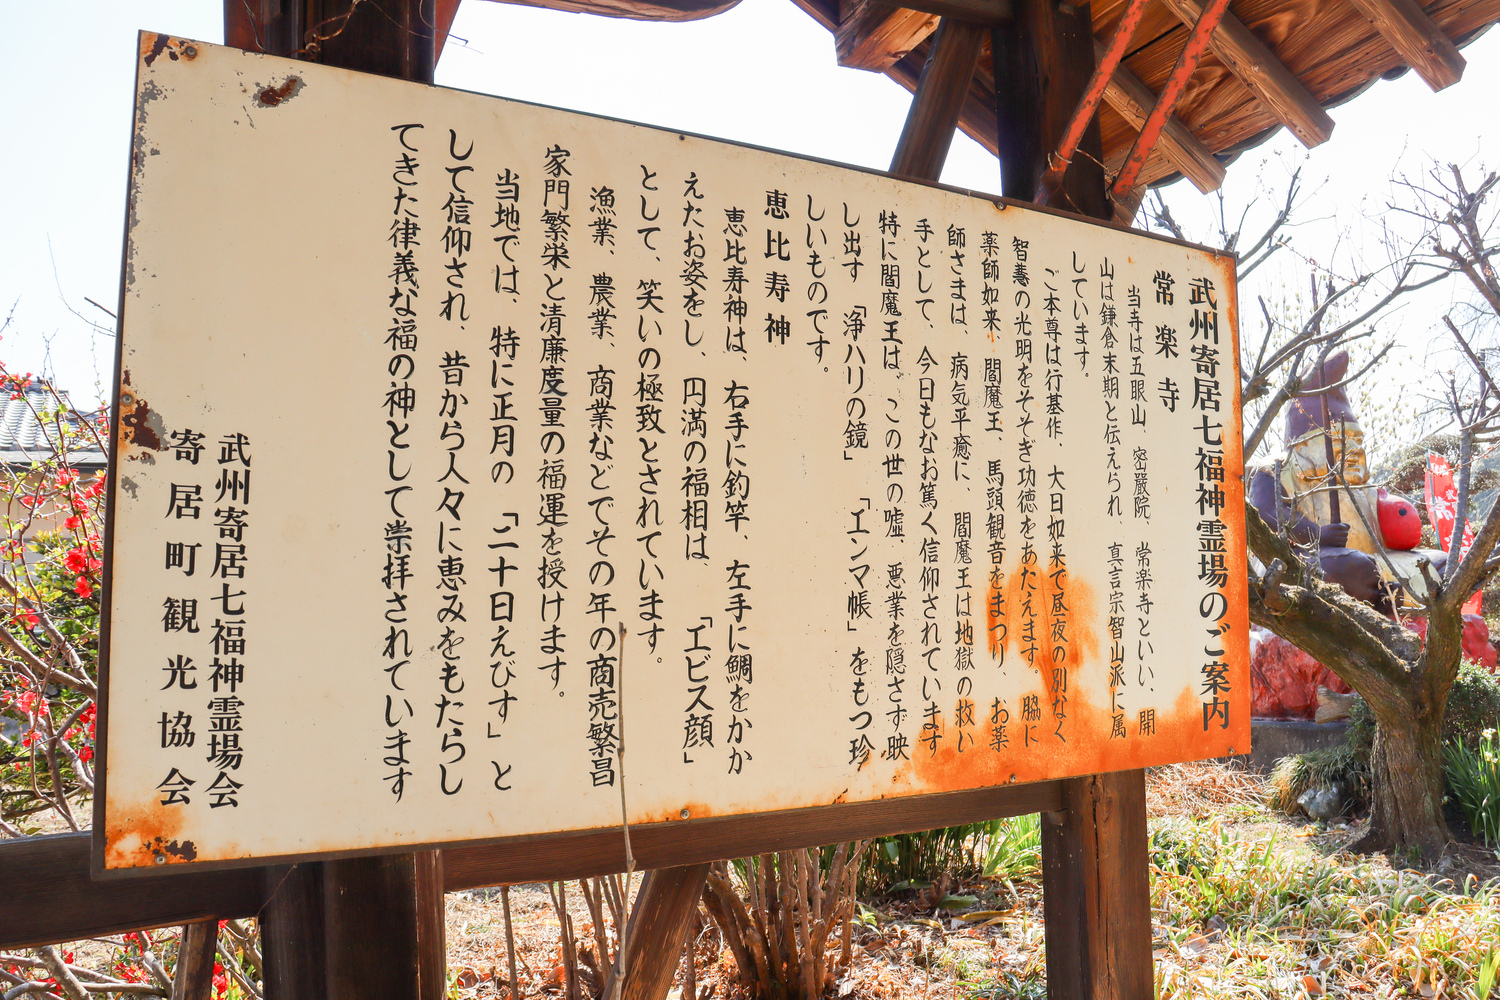 武州寄居七福神霊場のご案内
常楽寺
当寺は五眼山、密厳院、常楽寺といい、開
山は鎌倉末期と伝えられ、真言宗智山派に属
しています。
ご本尊は行基作、大日如来で昼夜の別なく
智慧の光明をそそぎ功徳をあたえます。脇に
薬師如来、閻魔王、馬頭観音をまつり、お薬
師さまは、病気平癒に、閻魔王は地獄の救い
手として、今日もなお篤く信仰されています
特に閻魔王は、この世の嘘、悪業を隠さず映
し出す「浄ハリの鏡」「エンマ帳」をもつ珍
しいものです。
恵比寿神
恵比寿神は、右手に釣竿、左手に鯛をかか
えたお姿をし、円満の福相は、「エビス顔」
として、笑いの極致とされています。
漁業、農業、商業などでその年の商売繁昌
家門繁栄と清廉度量の福運を授けます。
当地では、特に正月の「二十日えびす」と
して信仰され、昔から人々に恵みをもたらし
てきた律義な福の神として崇拝されています
武州寄居七福神霊場会
寄居町観光協会